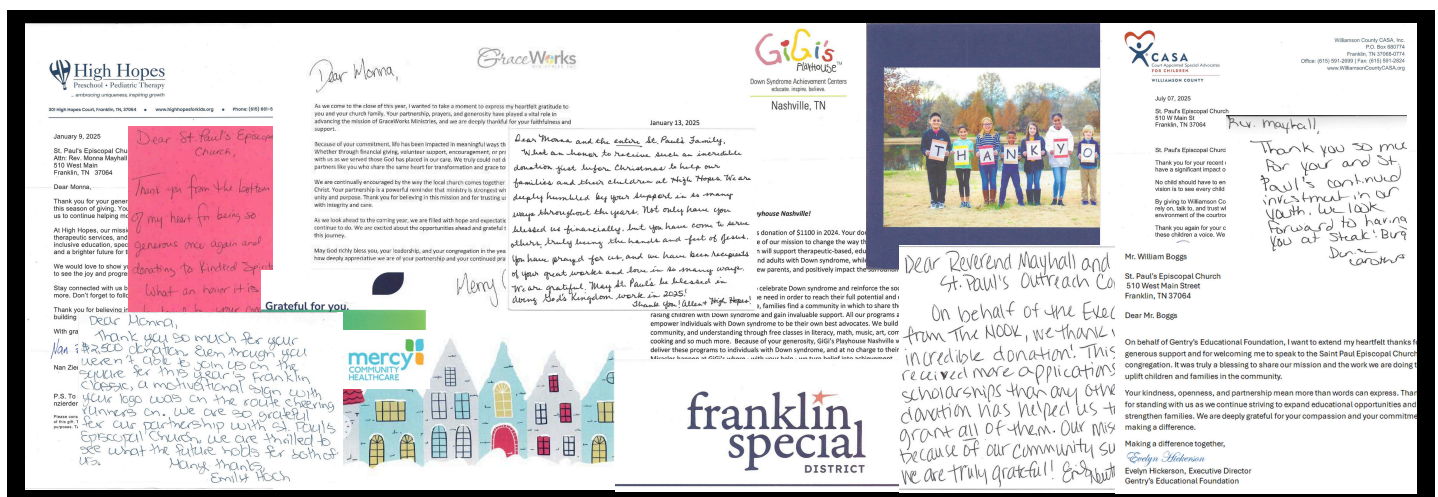 High Hopes
Preschool • Pediatric Therapy
... embracing uniqueness, inspiring growth
301 High Hopes Court, Franklin, TN, 37064 • www.highhopesforkids.org • Phone: (615) 661-5
January 9, 2025
St. Paul's Episcopal Chur
Attn: Rev. Monna Mayhall
510 West Main
Franklin, TN 37064
Dear Monna,
Thank you for your gener
this season of giving. You
us to continue helping mo
At High Hopes, our missi
therapeutic services, and
inclusive education, spec
and a brighter future for t
We would love to show y
to see the joy and progre
Stay connected with us b
more. Don't forget to follo
Thank you for believing in
building
With gra
Nan
Nan Zier
P.S. To
nzierder
Dear St Paul's Episcopal
Church,
Thank you from the bottom
of my heart for being so
generous once again and
donating to Kindred Spirit
What an honor it is
Dear Monna,
Thank you so much for your
$2,500 donation. Even though you
weren't able to join us on the
square for this year's Franklin
Classic, a motivational sign with
your logo was on the route cheering
runners on. We are so grateful
for our partnership with St. Paul's
Episcopal Church, we are thrilled to
see what the future holds for both of
us.
Many thanks,
Emily Hoch
GraceWorks
Dear Monna,
As we come to the close of this year, I wanted to take a moment to express my heartfelt gratitude to
you and your church family. Your partnership, prayers, and generosity have played a vital role in
advancing the mission of GraceWorks Ministries, and we are deeply thankful for your faithfulness and
support.
Because of your commitment, life has been impacted in meaningful ways th
Whether through financial giving, volunteer support, encouragement, or pr
with us as we served those God has placed in our care. We truly could not d
partners like you who share the same heart for transformation and grace to
We are continually encouraged by the way the local church comes together
Christ. Your partnership is a powerful reminder that ministry is strongest wh
unity and purpose. Thank you for believing in this mission and for trusting u
with integrity and care.
As we look ahead to the coming year, we are filled with hope and expectatio
continue to do. We are excited about the opportunities ahead and grateful t
this journey.
May God richly bless you, your leadership, and your congregation in the yea
how deeply appreciative we are of your partnership and your continued pra
Merry
Grateful for you,
mercy
COMMUNITY
HEALTHCARE
January 13, 2025
Dear Monna and the entire St. Paul's Family,
What an honor to receive such an incredible
donation just before Christmas to help our
families and their children at High Hopes. We are
deeply humbled by your support in so many
ways throughout the years. Not only have you
blessed us financially, but you have come to serve
others, truly being the hands and feet of Jesus.
You have prayed for us, and we have been recipients
of your great works and love in so many ways.
We are grateful. May St. Paul's be blessed in
doing God's Kingdom work in 2025!
Thank You! Allen & High Hopes!
GiGi's
Playhouse™
Down Syndrome Achievement Centers
educate. inspire. believe.
Nashville, TN
yhouse Nashville!
s donation of $1100 in 2024. Your do
e of our mission to change the way th
will support therapeutic-based, edu
nd adults with Down syndrome, while
ew parents, and positively impact the
celebrate Down syndrome and reinforce the so
e need in order to reach their full potential and
, families find a community in which to share th
raising children with Down syndrome and gain invaluable support. All our programs a
empower individuals with Down syndrome to be their own best advocates. We build
community, and understanding through free classes in literacy, math, music, art, com
cooking and so much more. Because of your generosity, GiGi's Playhouse Nashville w
deliver these programs to individuals with Down syndrome, and at no charge to their
THANKYO
franklin
special
DISTRICT
Dear Reverend Mayhall and
St. Paul's Outreach Co
On behalf of the Exec
from The NOOK, we thank
incredible donation! This
received more applications
scholarships than any othe
donation has helped us t
grant all of them. Our mis
because of our community su
we are truly grateful!
CASA
Court Appointed Special Advocates
FOR CHILDREN
WILLIAMSON COUNTY
Williamson County CASA, Inc.
P.O. Box 680774
Franklin, TN 37068-0774
Office: (615) 591-2699 | Fax: (615) 591-2824
www.WilliamsonCountyCASA.org
July 07, 2025
St. Paul's Episcopal Church
510 W Main St
Franklin, TN 37064
St. Paul's Episcopal Church
Thank you for your recent
have a significant impact o
No child should have to en
vision is to see every child
By giving to Williamson Co
rely on, talk to, and trust wh
environment of the courtroo
Thank you again for your c
these children a voice. We
Rev. Mayhall,
Thank you so mu
for your and St.
Paul's continued
investment in our
youth. We look
forward to having
you at Steak & Burg
Mr. William Boggs
St. Paul's Episcopal Church
510 West Main Street
Franklin, TN 37064
Dear Mr. Boggs
On behalf of Gentry's Educational Foundation, I want to extend my heartfelt thanks f
generous support and for welcoming me to speak to the Saint Paul Episcopal Church
congregation. It was truly a blessing to share our mission and the work we are doing t
uplift children and families in the community.
Your kindness, openness, and partnership mean more than words can express. Than
for standing with us as we continue striving to expand educational opportunities and
strengthen families. We are deeply grateful for your compassion and your commitme
making a difference.
Making a difference together,
Evelyn Hickerson
Evelyn Hickerson, Executive Director
Gentry's Educational Foundation